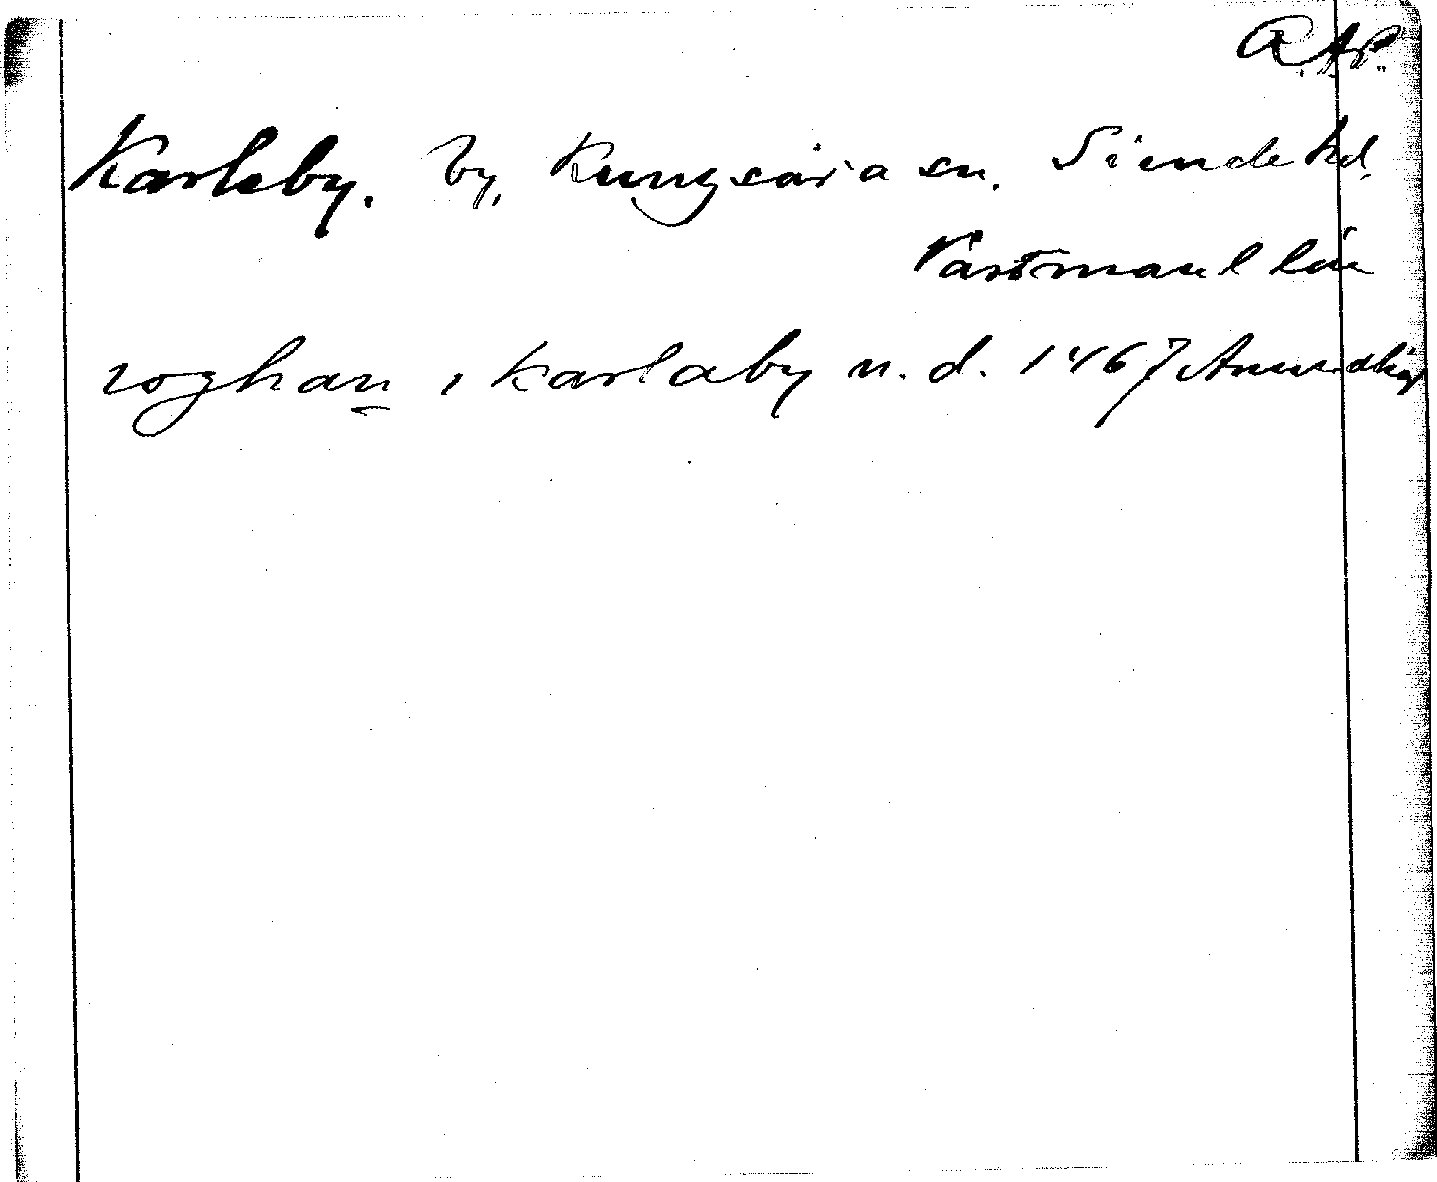 Karleby. by, Kungsåra sn. Siende hd.
Västmanl län
roghan i karlaby n.d. 1467